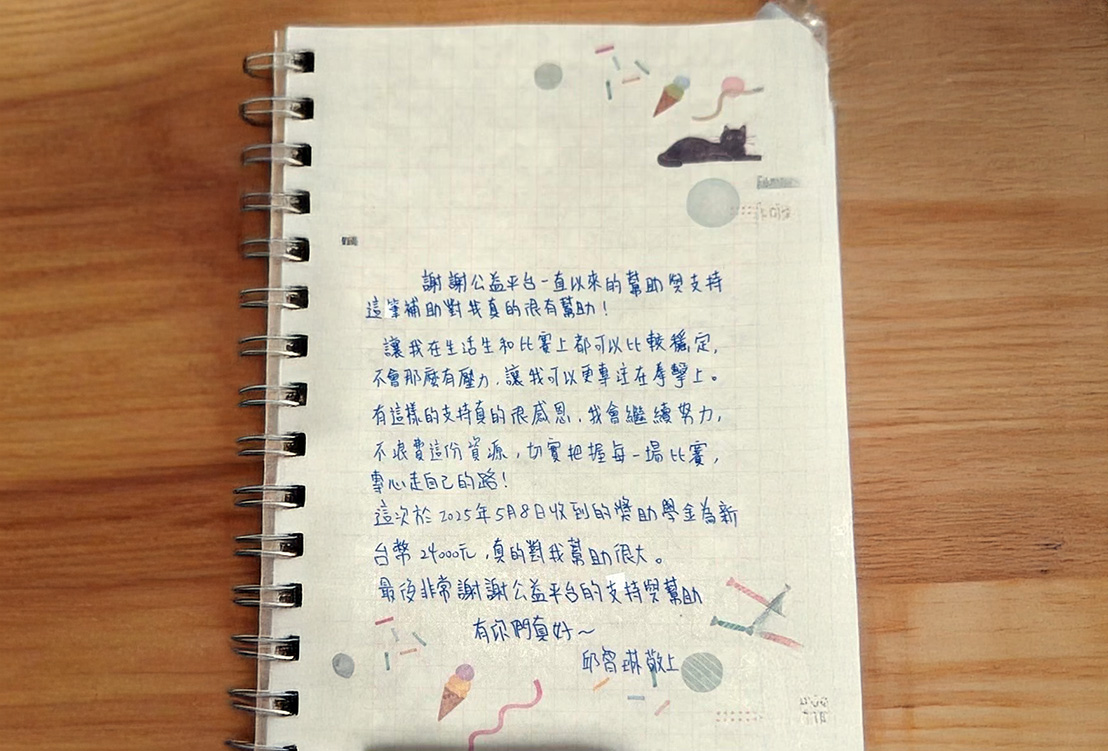 謝謝公益平台一直以來的幫助與支持
這筆補助對我真的很有幫助!
讓我在生活生和比賽上都可以比較穩定,
不會那麼有壓力,讓我可以更專注在拳擊上。
有這樣的支持真的很感恩,我會繼續努力,
不浪費這份資源,切實把握每一場比賽,
專心走自己的路!
這次於2025年5月8日收到的獎助學金為新
台幣24000元,真的對我幫助很大。
最後非常謝謝公益平台的支持與幫助
有你們真好~
邱胥琳敬上